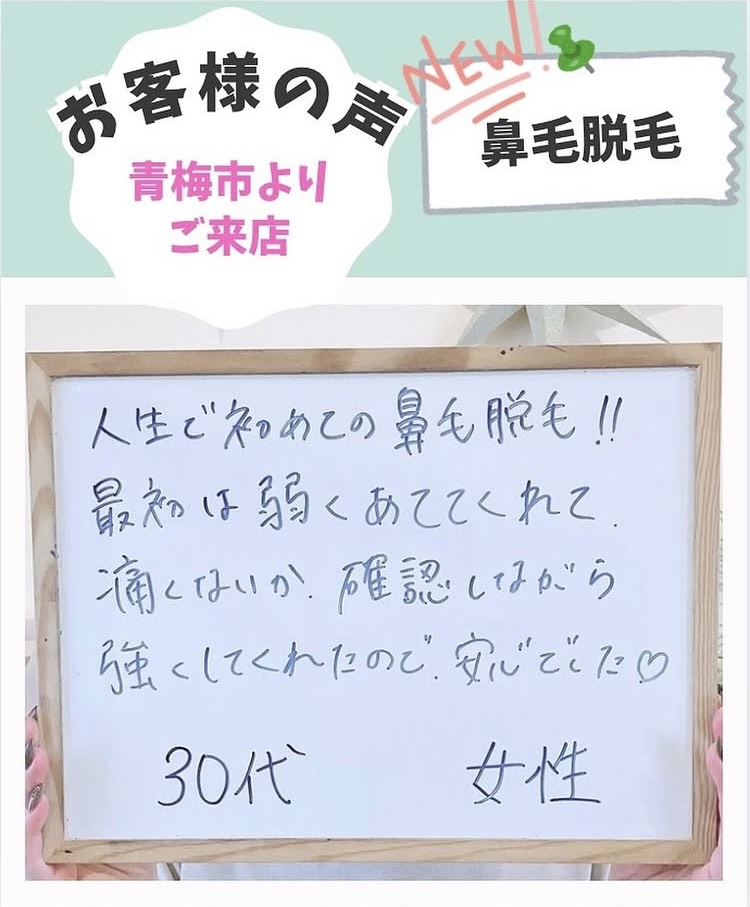 お客様の声
青梅市より
ご来店
NEW!
鼻毛脱毛
人生で初めての鼻毛脱毛!!
最初は弱くあててくれて、
痛くないか、確認しながら
強くしてくれたので、安心でした♡
30代 女性